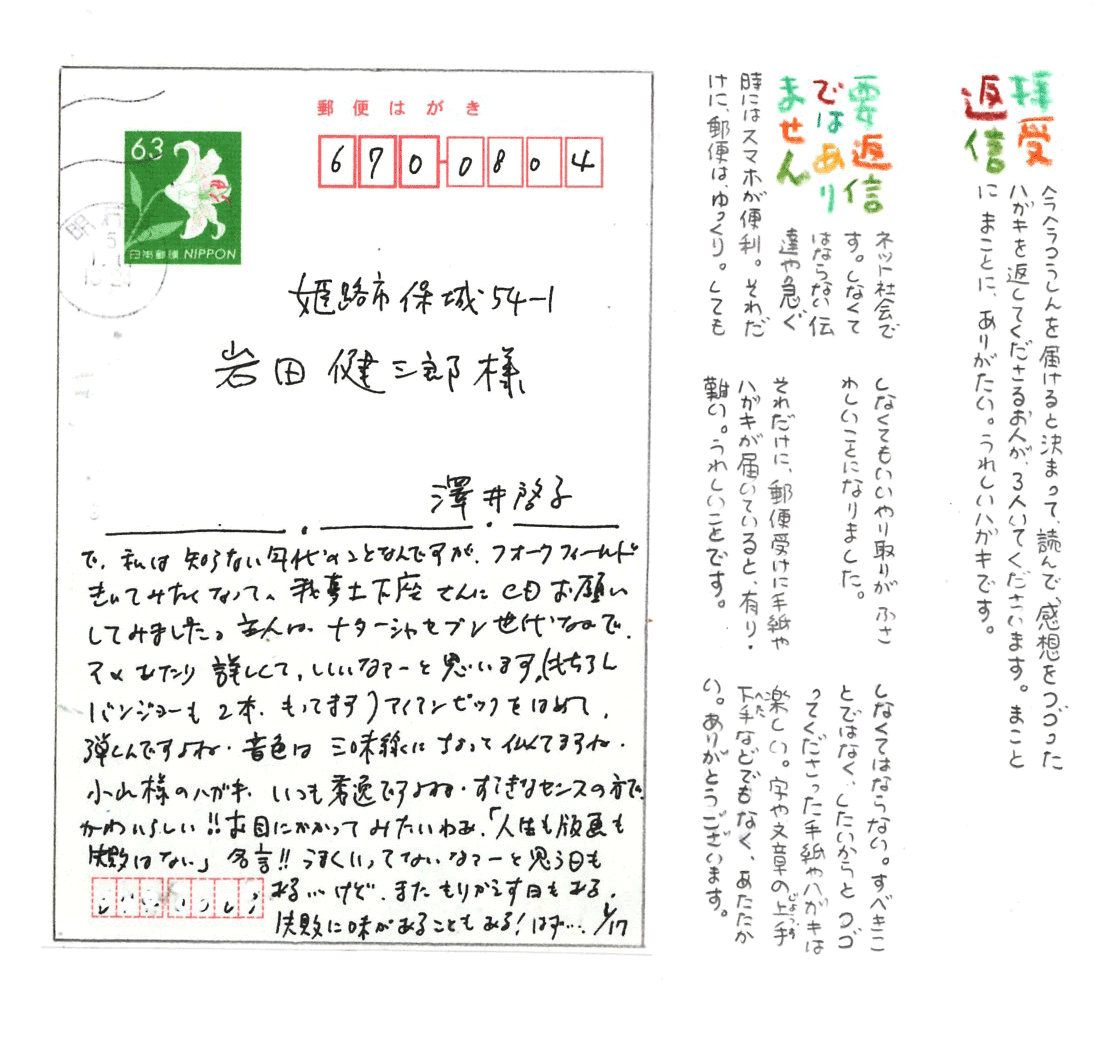 拝受
返信
へらへらつうしんを届けると決まって、読んで、感想をつづった
ハガキを返してくださるお人が、3人いてくださいます。まこと
に まことに、ありがたい。うれしいハガキです。
要返信
ではあり
ません
ネット社会で
す。しなくて
はならない伝
達や急ぐ
時にはスマホが便利。それだ
けに、郵便は、ゆっくり。しても
しなくてもいいやり取りが ふさ
わしいことになりました。
それだけに、郵便受けに手紙や
ハガキが届いていると、有り・
難い。うれしいことです。
しなくてはならない。すべきこ
とではなく、したいからと つづ
ってくださった手紙やハガキは
楽しい。字や文章の上手
じょうず
下手などでもなく、あたたか
へた
い。ありがとうございます。
郵便はがき
670-0804
63
日本郵便 NIPPON
明石
姫路市保城54-1
岩田健三郎様
澤井啓子
で、私は知らない年代のことなんですが、フォークフィールド
きいてみたくなって、我夢土下座さんにCDお願い
してみました。主人は、ナターシャセブン世代なので、
マメむたり詳しくて、いいなァーと思います。(もちろん
バンジョーも2本、もってます)アイアンピックをはめて、
弾くんですよね・音色は三味線にちょって似てますね・
小山様のハガキ、いつも秀逸ですよね・すてきなセンスの方で、
かわいらしい!!お目にかかってみたいわぁ、「人生も版画も
失敗はない」名言!!うまくいってないなァーと思う日も
ある…けど、またもりかえす日もある。
失敗に味があることもある!はず… 6/17